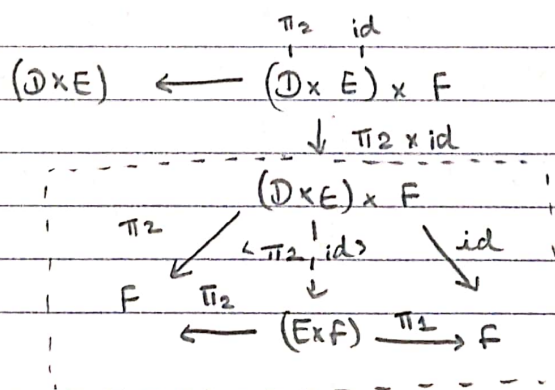 π2 id
(D×E) ← (D× E) × F
↓ π2 × id
(D×E) × F
π2 <π2, id> id
F π2 (E×F) π1 F